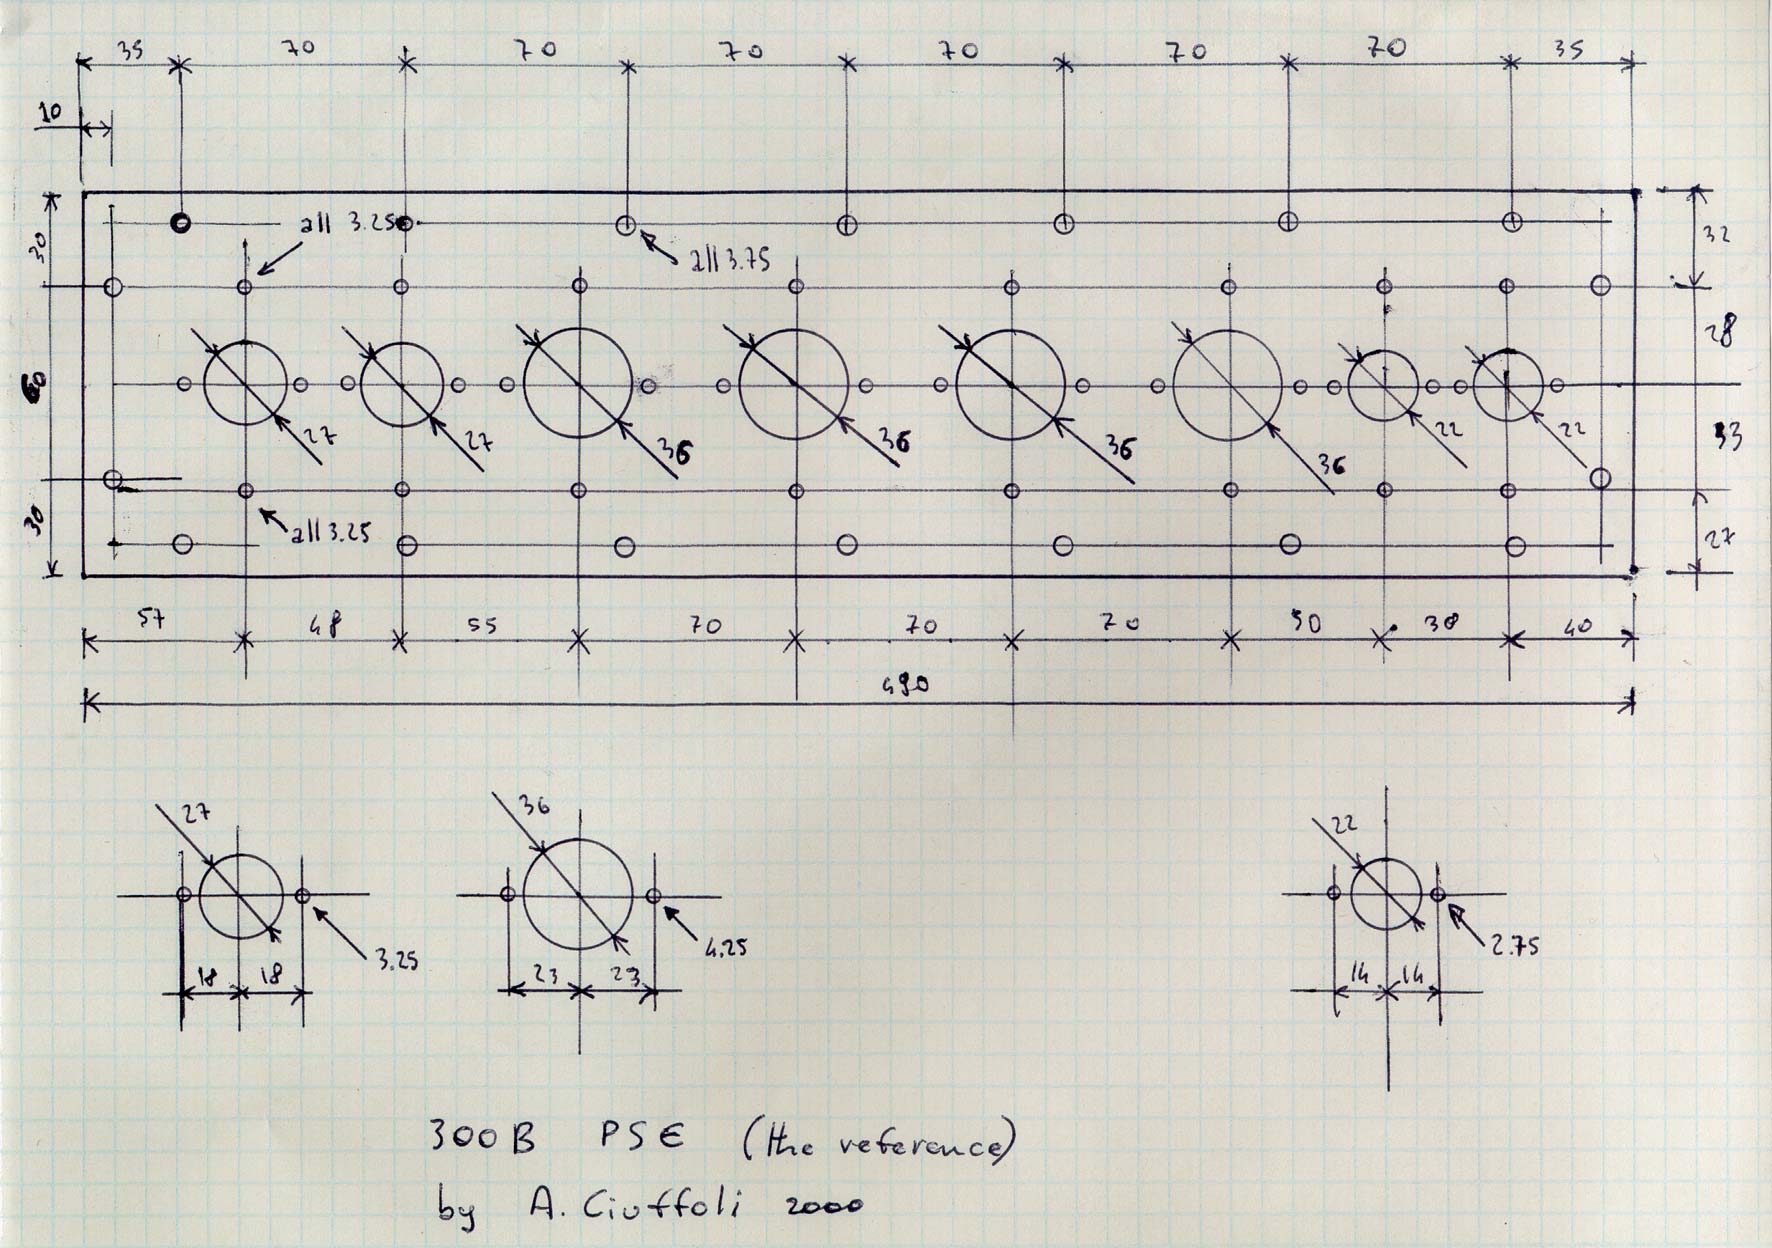 35 70 70 70 70 70 70 35
10
all 3.25
30 32
all 3.75
28
60
27 27 36 36 36 36 22 22
33
30 all 3.25 27
57 48 55 70 70 70 50 38 40
490
27 36 22
3.25 4.25 2.75
18 18 23 23 14 14
300B PSE (the reference)
by A. Ciuffoli 2000